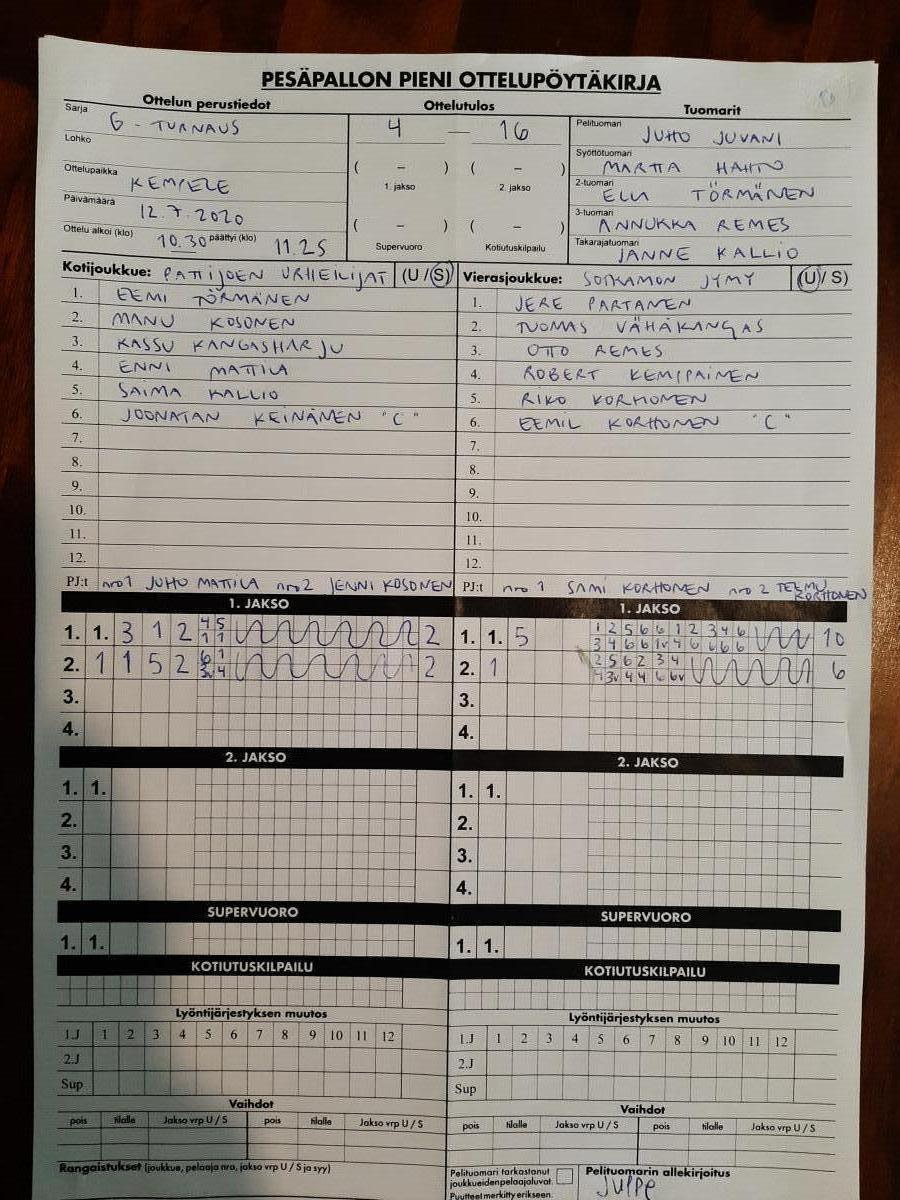 PESÄPALLON PIENI OTTELUPÖYTÄKIRJA
Ottelun perustiedot Ottelutulos Tuomarit
Sarja G - TURNAUS
Lohko
Ottelupaikka KEMPELE
Päivämäärä 12.7.2020
Ottelu alkoi (klo) 10.30 päättyi (klo) 11.25
4 — 16
( – ) ( – )
1. jakso 2. jakso
( – ) ( – )
Supervuoro Kotiutuskilpailu
Pelituomari JUHO JUVANI
Syöttötuomari MARTTA HAHTO
2-tuomari ELLI TÖRMÄNEN
3-tuomari ANNUKKA REMES
Takarajatuomari JANNE KALLIO
Kotijoukkue: PATTIJOEN URHEILIJAT (U / S)
1. EEMI TÖRMÄNEN
2. MANU KOSONEN
3. KASSU KANGASHARJU
4. ENNI MATTILA
5. SAIMA KALLIO
6. JOONATAN KEINÄNEN "C"
7.
8.
9.
10.
11.
12.
PJ:t nro 1 JUHO MATTILA nro 2 JENNI KOSONEN
Vierasjoukkue: SOTKAMON JYMY (U / S)
1. JERE PARTANEN
2. TUOMAS VÄHÄKANGAS
3. OTTO REMES
4. ROBERT KEMPPAINEN
5. RIKO KORHONEN
6. EEMIL KORHONEN "C"
7.
8.
9.
10.
11.
12.
PJ:t nro 1 SAMI KORHONEN nro 2 TEEMU KORHONEN
1. JAKSO
1. 1. 3 1 2 4 5 2
1 1
2. 1 1 5 2 6 1 2
3v 4
3.
4.
2. JAKSO
1. 1.
2.
3.
4.
SUPERVUORO
1. 1.
KOTIUTUSKILPAILU
Lyöntijärjestyksen muutos
1.J 1 2 3 4 5 6 7 8 9 10 11 12
2.J
Sup
Vaihdot
pois tilalle Jakso vrp U / S pois tilalle Jakso vrp U / S
Rangaistukset (joukkue, pelaaja nro, jakso vrp U / S ja syy)
1. JAKSO
1. 1. 5 1 2 5 6 6 1 2 3 4 6 10
3 4 6 6 1v 4 6 6 6 6
2. 1 2 5 6 2 3 4 6
4 3v 4 4 6 6v
3.
4.
2. JAKSO
1. 1.
2.
3.
4.
SUPERVUORO
1. 1.
KOTIUTUSKILPAILU
Lyöntijärjestyksen muutos
1.J 1 2 3 4 5 6 7 8 9 10 11 12
2.J
Sup
Vaihdot
pois tilalle Jakso vrp U / S pois tilalle Jakso vrp U / S
Pelituomari tarkastanut
joukkueidenpelaajaluvat.
Puutteet merkitty erikseen.
Pelituomarin allekirjoitus
Julppe